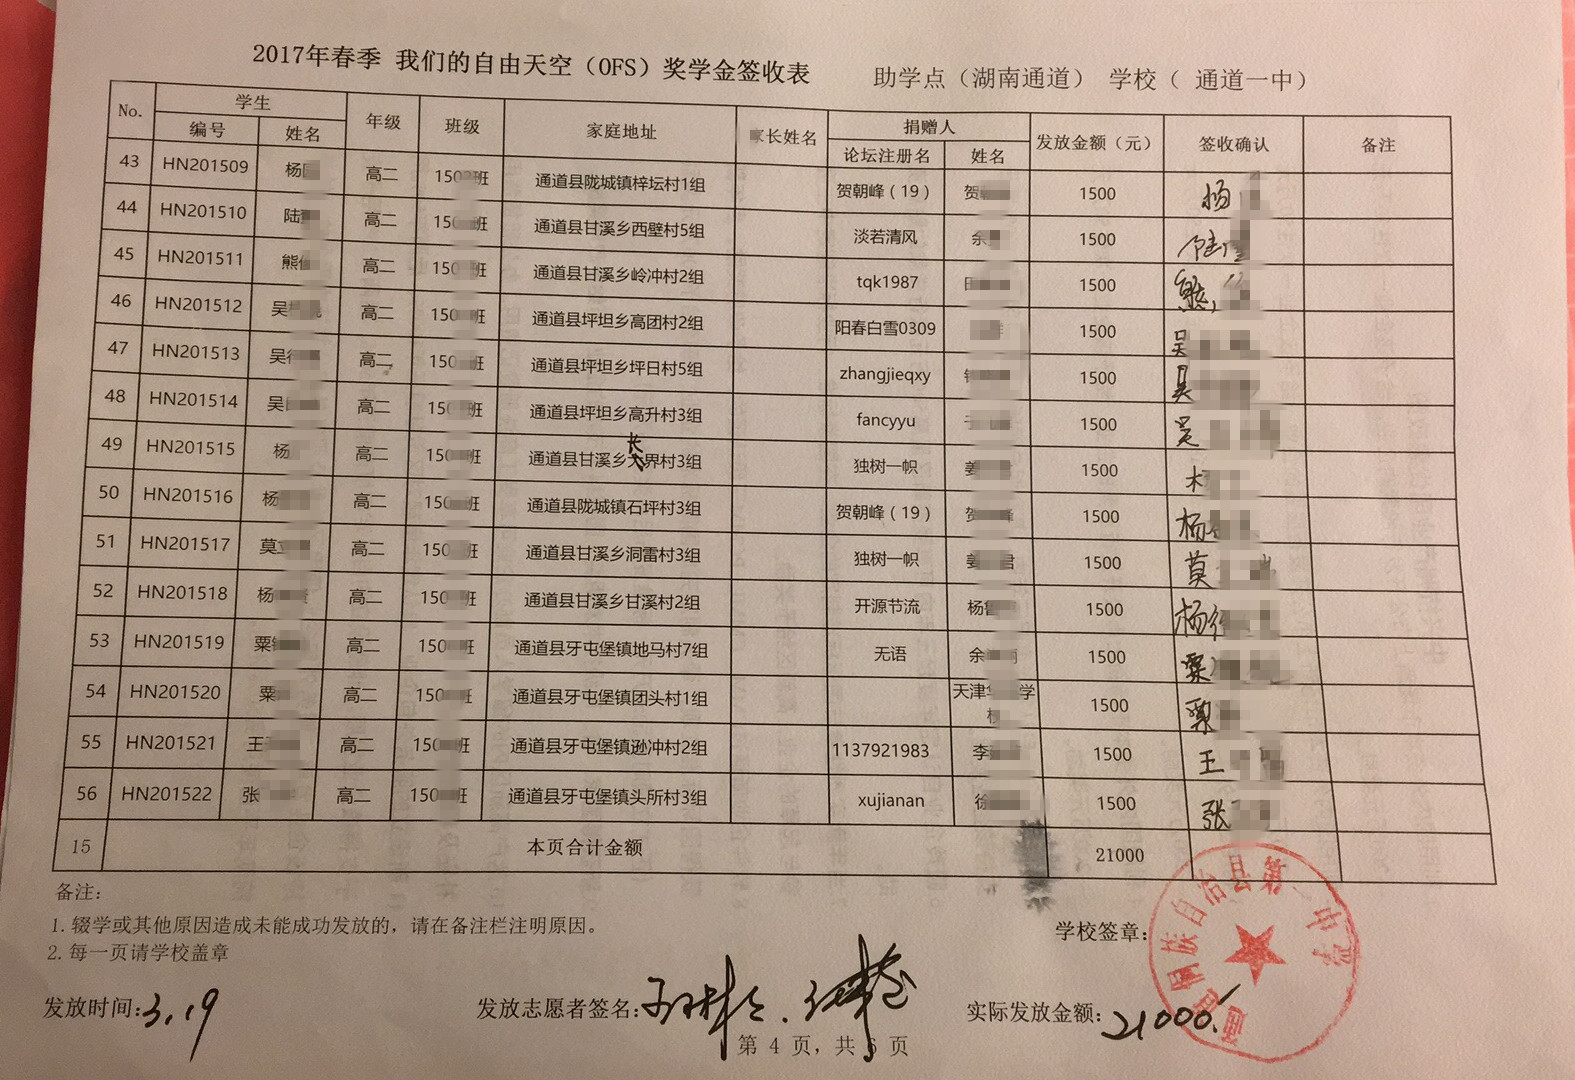 2017年春季 我们的自由天空（OFS）奖学金签收表 助学点（湖南通道） 学校（ 通道一中）
No. 学生 年级 班级 家庭地址 家长姓名 捐赠人 发放金额（元） 签收确认 备注
编号 姓名 论坛注册名 姓名
43 HN201509 杨 高二 150 班 通道县陇城镇梓坛村1组 贺朝峰（19） 贺 1500 杨
44 HN201510 陆 高二 150 班 通道县甘溪乡西壁村5组 淡若清风 余 1500 陆
45 HN201511 熊 高二 150 班 通道县甘溪乡岭冲村2组 tqk1987 1500 熊
46 HN201512 吴 高二 150 班 通道县坪坦乡高团村2组 阳春白雪0309 1500 吴
47 HN201513 吴 高二 150 班 通道县坪坦乡坪日村5组 zhangjieqxy 1500 吴
48 HN201514 吴 高二 150 班 通道县坪坦乡高升村3组 fancyyu 1500 吴
49 HN201515 杨 高二 150 班 通道县甘溪乡长界村3组 独树一帜 姜 君 1500
50 HN201516 杨 高二 150 班 通道县陇城镇石坪村3组 贺朝峰（19） 贺 峰 1500 杨
51 HN201517 莫 高二 150 班 通道县甘溪乡洞雷村3组 独树一帜 姜 君 1500 莫
52 HN201518 杨 高二 150 班 通道县甘溪乡甘溪村2组 开源节流 杨 1500 杨
53 HN201519 粟 高二 150 班 通道县牙屯堡镇地马村7组 无语 余 1500 粟
54 HN201520 粟 高二 150 班 通道县牙屯堡镇团头村1组 天津 学 1500 粟
55 HN201521 王 高二 150 班 通道县牙屯堡镇逊冲村2组 1137921983 李 1500 王
56 HN201522 张 高二 150 班 通道县牙屯堡镇头所村3组 xujianan 徐 1500 张
15 本页合计金额 21000
备注：
1. 辍学或其他原因造成未能成功发放的，请在备注栏注明原因。
2. 每一页请学校盖章
学校签章：
通道侗族自治县第一中学
发放时间:3.19 发放志愿者签名: 实际发放金额: 21000.
第 4 页，共 6 页